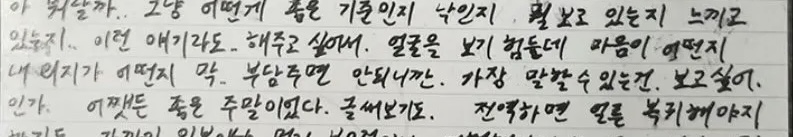 아 뭐랄까.. 그냥 어떤게 좋은 기준인지 낙인지 뭘 보고 있는지 느끼고
있는지.. 이런 얘기라도.. 해주고 싶어서. 얼굴을 보기 힘들데 마음이 어떤지
내 의지가 어떤지 막.. 부담주면 안되니깐. 가장 말할 수 있는건. 보고싶어.
인가. 어쨋든 좋은 주말이었다. 글써보기도. 전역하면 얼른 복귀해야지